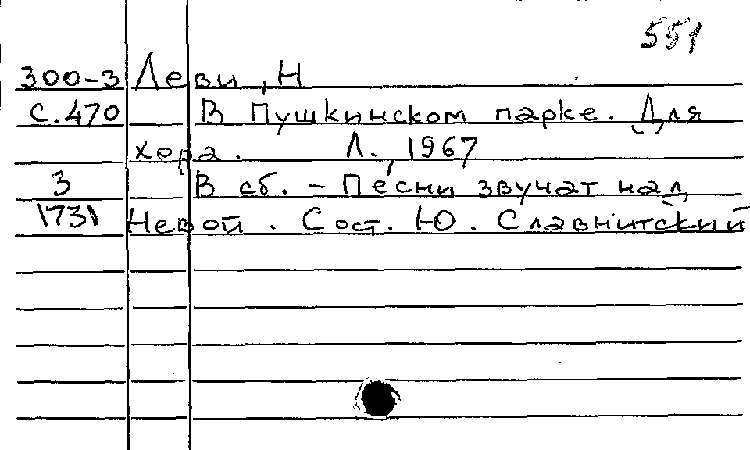 551
300-3 Леви, Н
С.470 В Пушкинском парке. Для
хора. Л., 1967
3 В сб. - Песни звучат над
1731 Невой. Сост. Ю. Славнитский